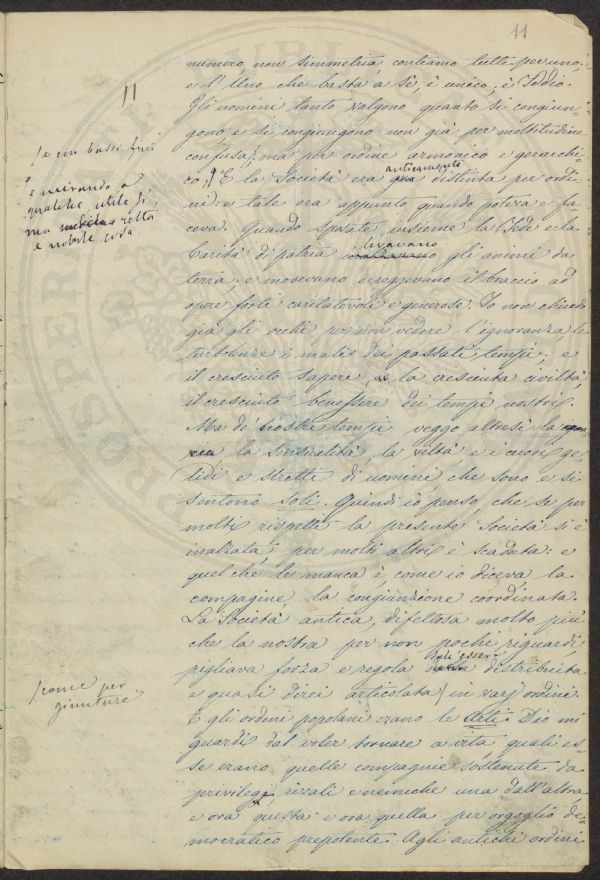 11
numero, non simmetria, contiamo tutti per uno;
e l'Uno che basta a sè, è unico; è Iddio.
11
Gli uomini tanto valgono quanto si congiun-
gono e si congiungono non già per moltitudine
se un bassi fini
confusa, ma per ordine armonico e gerarchi-
co. E la Società era anticamente distinta per ordi-
e mirando a
qualche utile sì,
ni: e tale era appunto quando poteva e fa-
ma a retta
e nobile cosa
ceva. Quando sposate insieme la Fede e la
Carità di patria levavano gli animi da
terra, e movevano e reggevano il braccio ad
opere forti caritatevoli e generose. Io non chiudo
già gli occhi per non vedere l'ignoranza le
turbolenze i mali dei passati tempi; e
il cresciuto sapere, la cresciuta civiltà
il cresciuto benessere dei tempi nostri.
Ma de' nostri tempi veggo altresì la
la sensualità, la viltà e i cuori ge-
lidi e stretti di uomini, che sono e si
sentono soli. Quindi io penso, che se per
molti rispetti la presente Società si è
inalzata, per molti altri è scaduta: e
quel che le manca è, come io diceva la
compagine, la congiunzione coordinata.
La Società antica, difettosa molto più
che la nostra per non pochi riguardi,
pigliava forza e regola dell'esser distribuita
come per
giunture
e quasi direi articolata in varj ordini.
E gli ordini popolani erano le Arti. Dio mi
guardi dal voler tornare a vita quali es-
se erano quelle compagnie sostenute da
privilegi, rivali e nemiche una dall'altra,
e ora questa e ora quella per orgoglio de-
mocratico prepotente. Agli antichi ordini